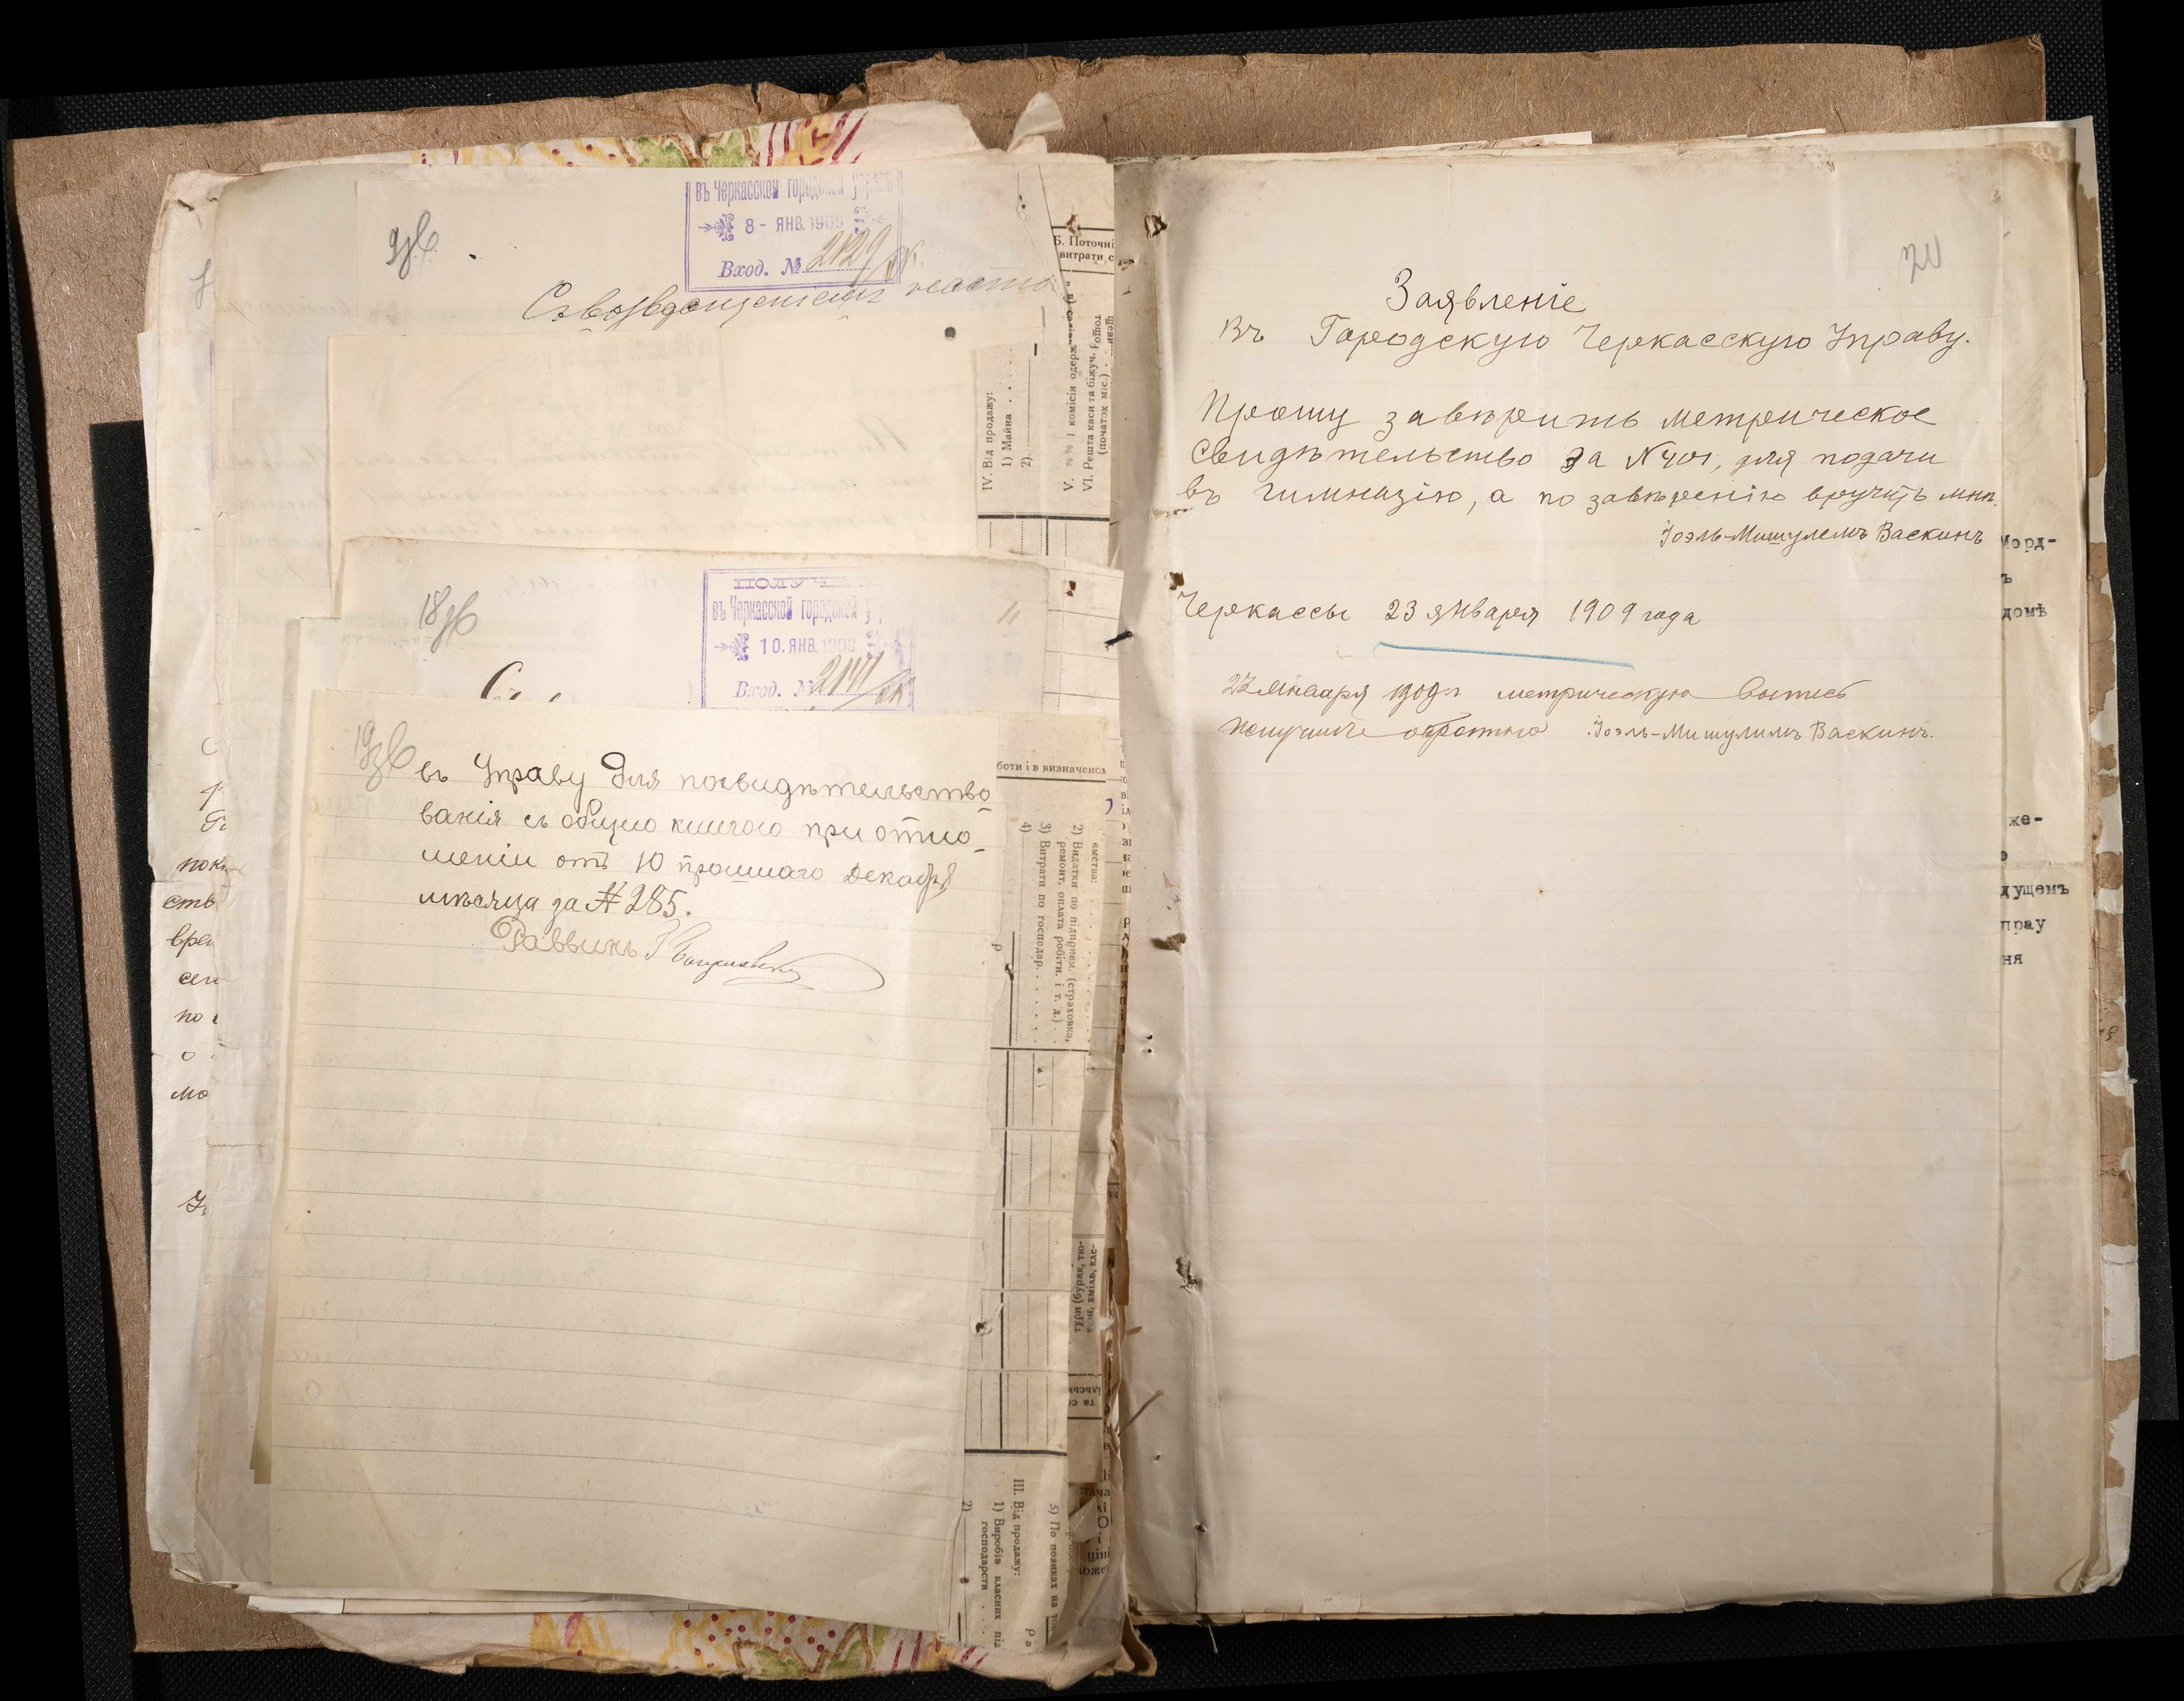 въ Черкасской городской управѣ
8 - ЯНВ. 1909
Вход. № 2129
Съ возвращеніемъ
IV. Від продажу:
1) Майна . . . .
2)
Б. Поточні
витрати с
VI. Решта каси та біжуч.
(початок міс.)
18
въ Черкасской городской у
10. ЯНВ. 1909
Вход. № 2141
19
въ Управу для посвидѣтельство-
ванія съ общею книгою при отно-
шеніи отъ 10 прошлаго Декабря
мѣсяца за № 285.
Раввинъ
боти і в визначеном
2) Видатки по підприєм. (страховка,
ремонт, оплата робітн. і т. д.)
3) Витрати по господар. . . . . .
4)
III. Від продажу:
1) Виробів власних під
господарств . . .
2)
5) По позиках на
20
Заявленіе
Въ Городскую Черкасскую Управу.
Прошу завѣрить метрическое
свидѣтельство за № 401, для подачи
въ гимназію, а по завѣренію вручить мнѣ.
Іоэль-Мишулемъ Васкинъ
Черкассы 23 января 1909 года
27 января 1909 г метрическую выпись
получилъ обратно Іоэль-Мишулимъ Васкинъ.
Морд-
ъ
домѣ
же-
дущемъ
прау
ня